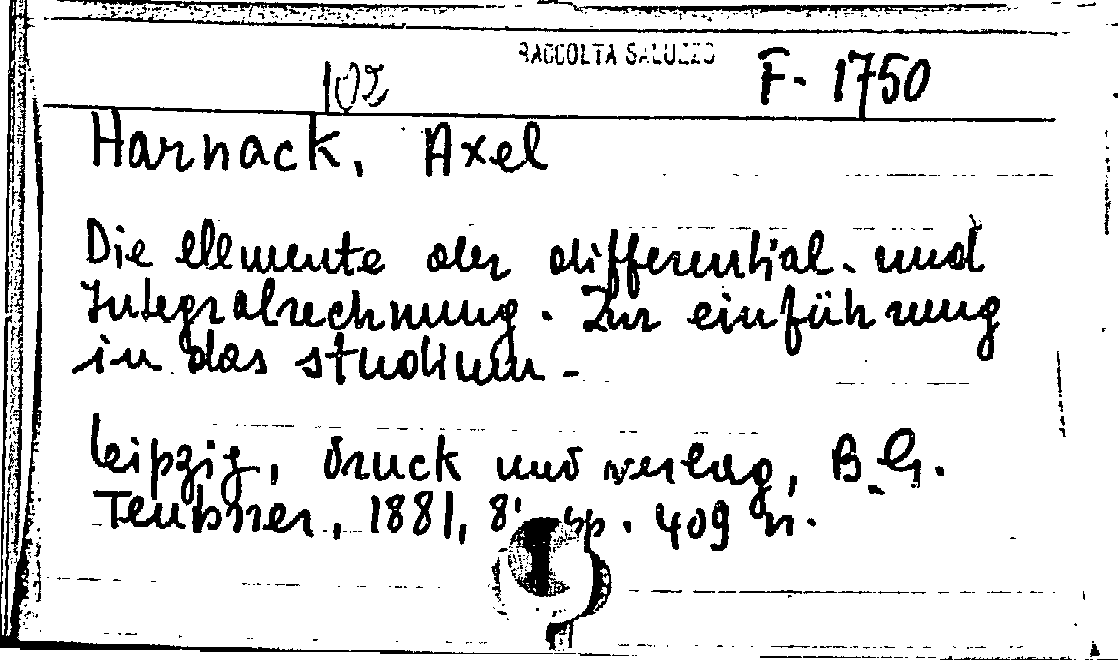 RACCOLTA SALUZZO
102 F. 1750
Harnack, Axel
Die elemente der differential. und
Integralrechnung. Zur einführung
in das studium -
Leipzig, druck und verlag, B.G.
Teubner, 1881, 8° pp. 409 n.